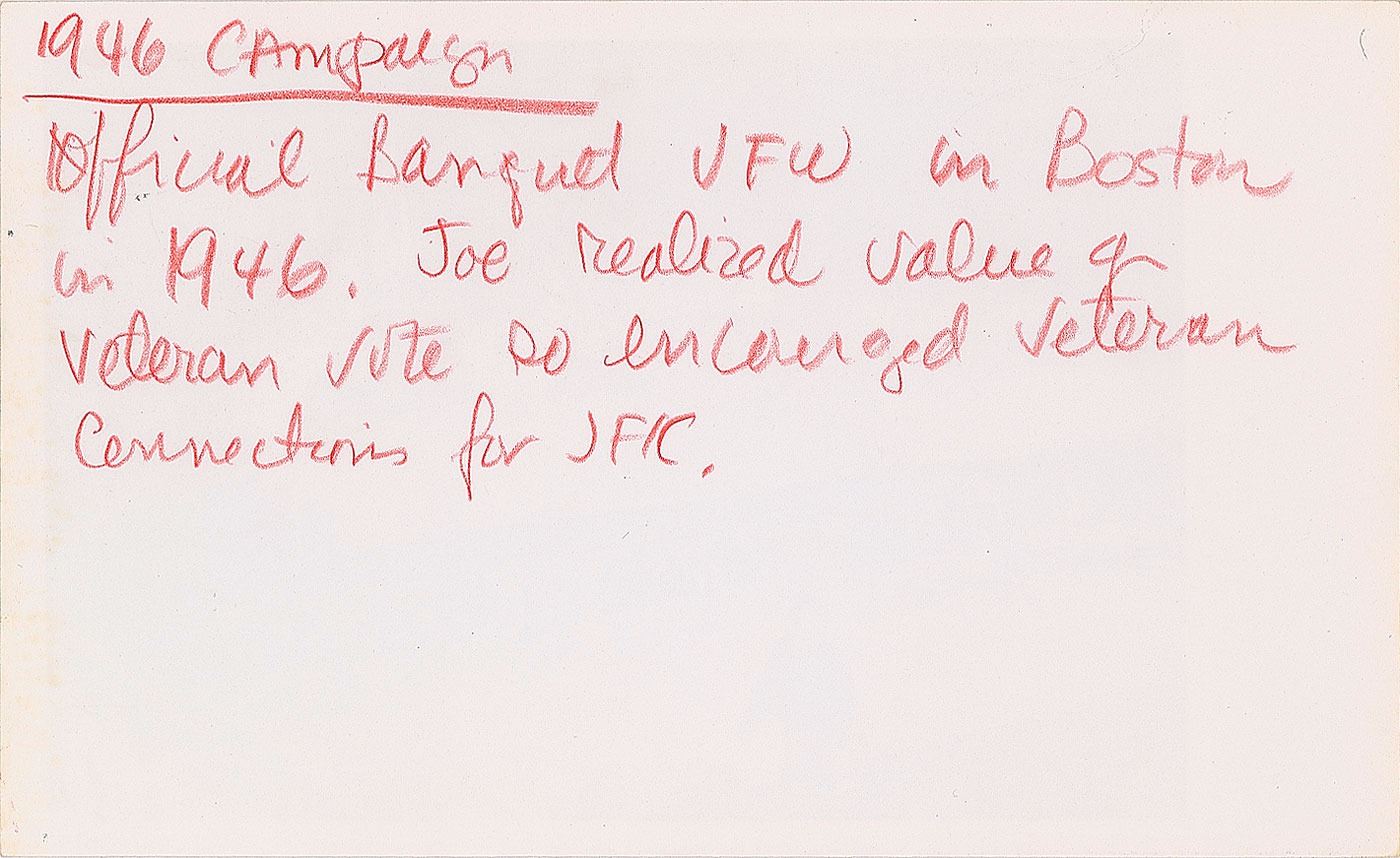 1946 Campaign
Official Banquet VFW in Boston
in 1946. Joe realized value of
veteran vote so encouraged veteran
connections for JFK.